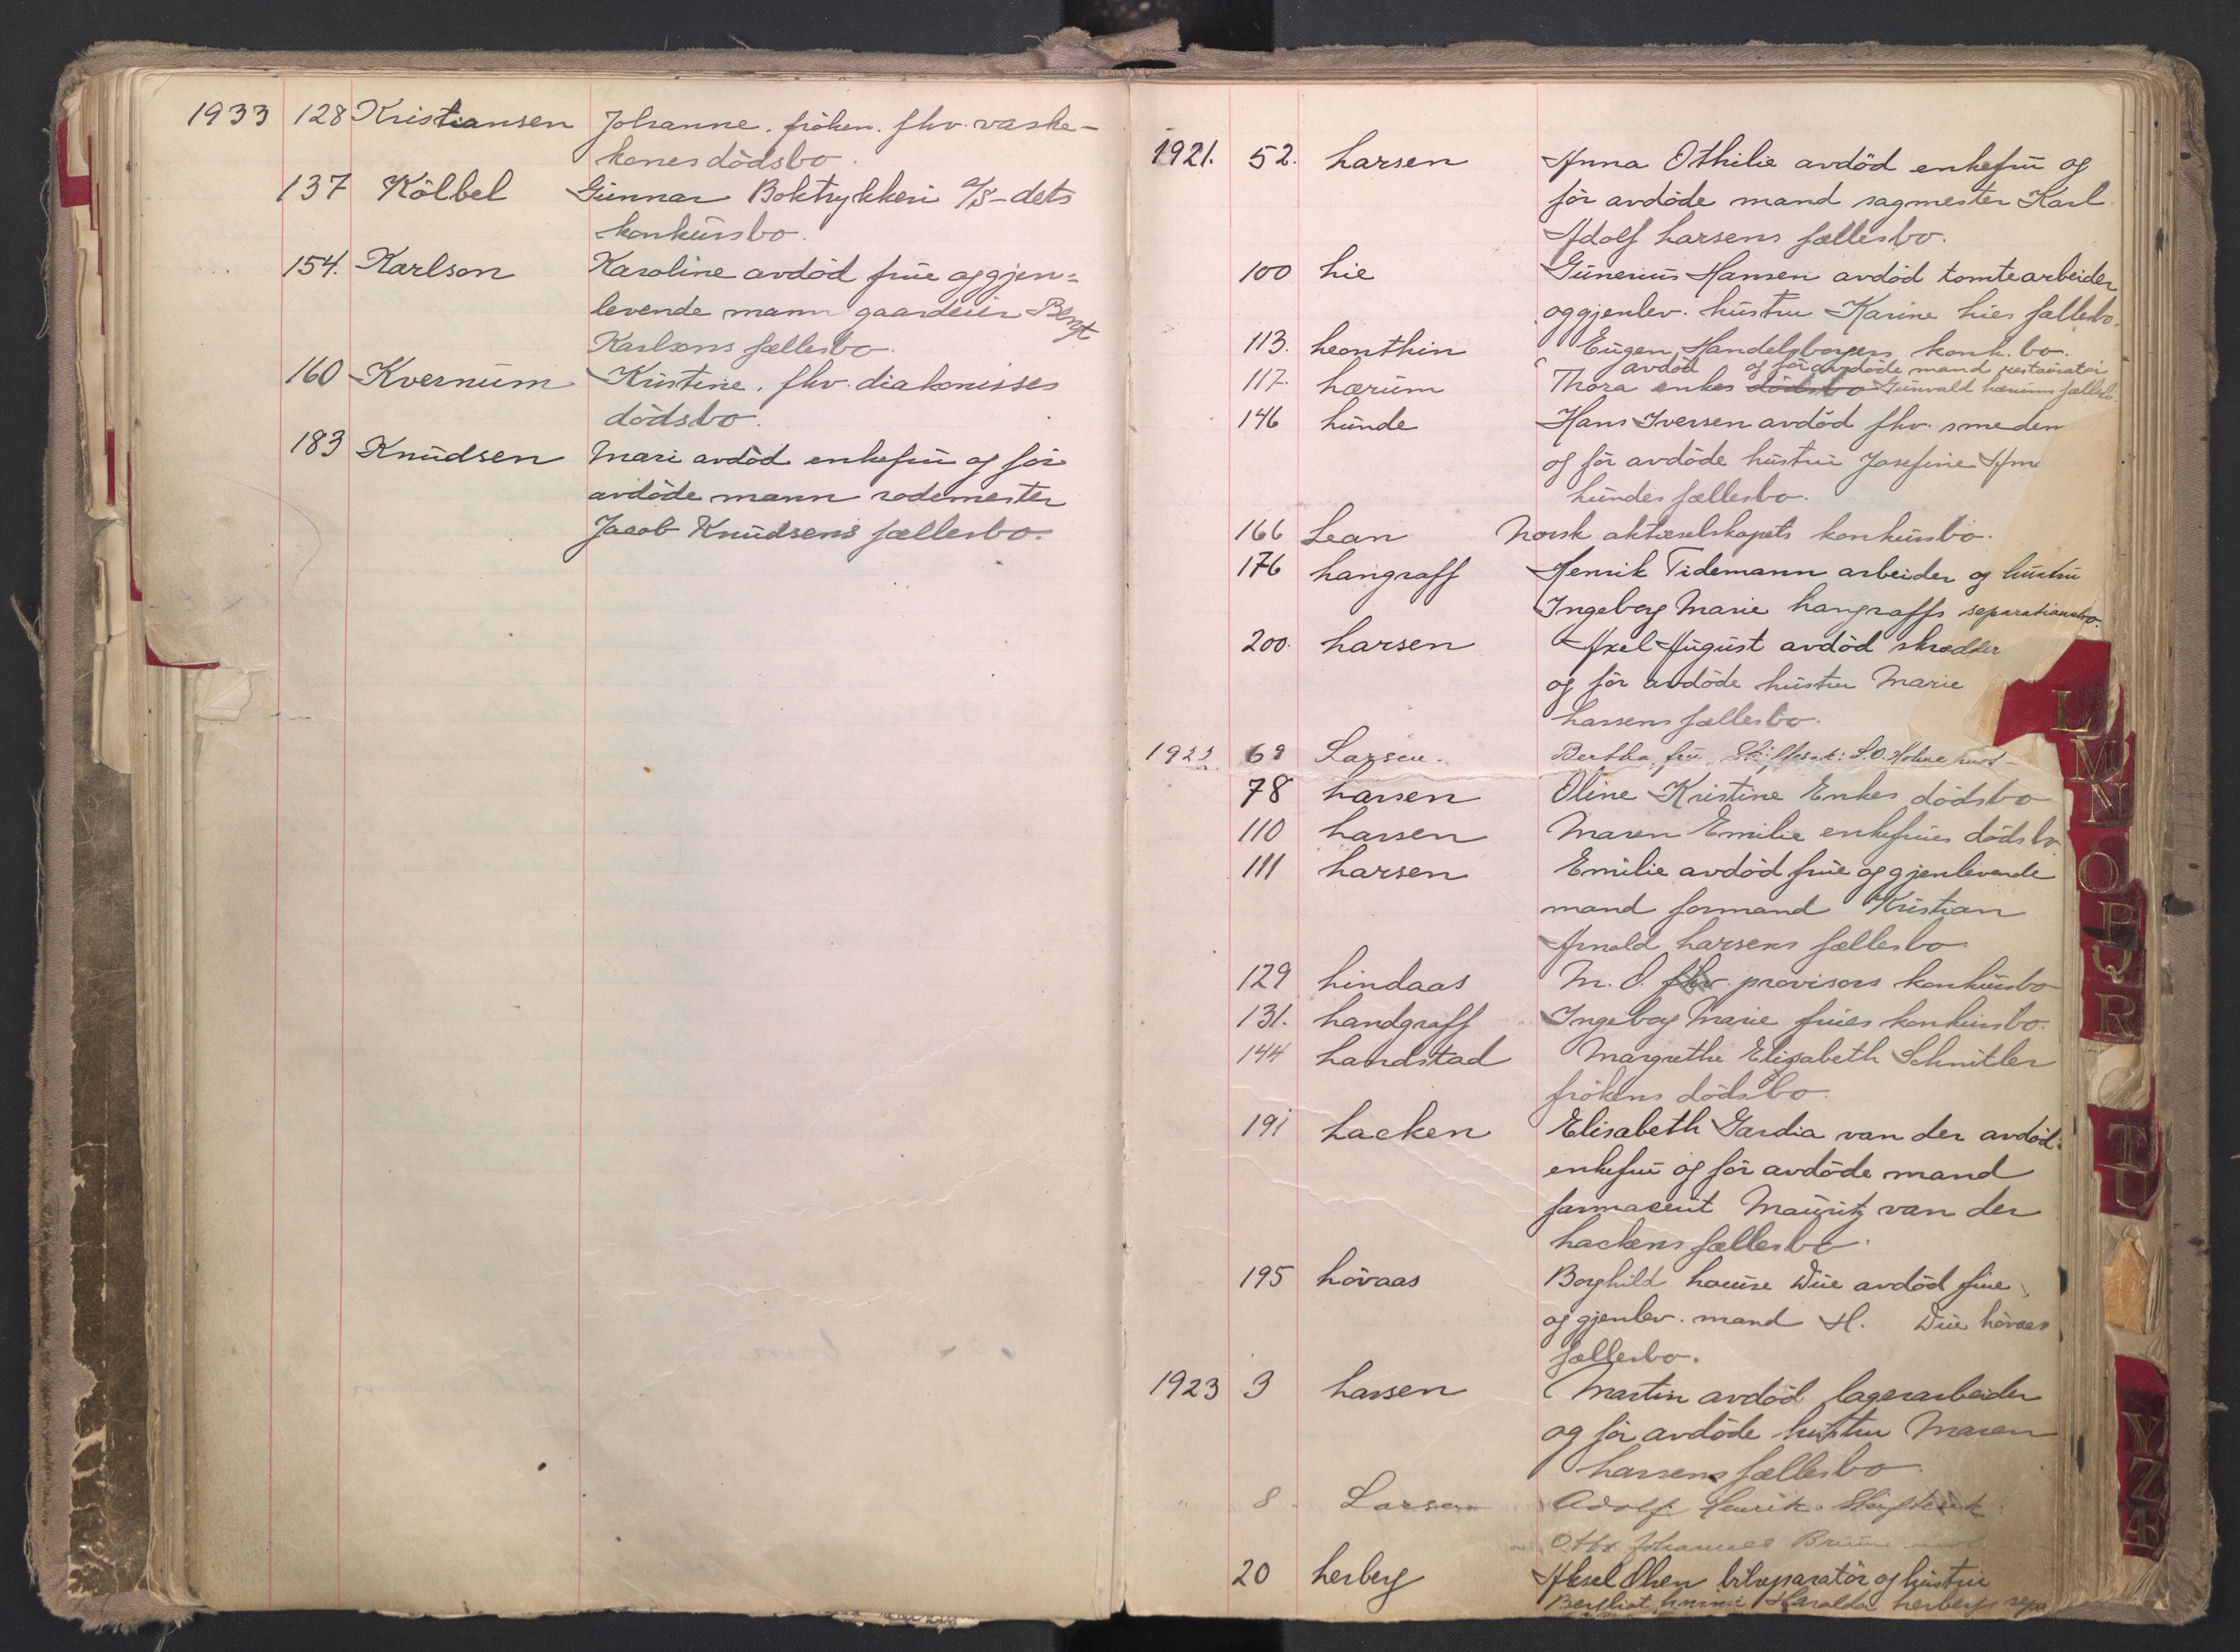 1933 128 Kristiansen Johanne. fröken. fhv. vaske-
konesdödsbo.
137 Kölbel Gunnar Boktrykkeri A/S- dets
konkursbo.
154. Karlson Karoline avdöd frue og gjen=
levende mann gaardeier Bengt
Karlsons fællesbo.
160 Kvernum Kristine. fhv. diakonisses
dödsbo.
183 Knudsen Mari avdöd enkefru og för
avdöde mann rodemester
Jacob Knudsens fællesbo.
1921. 52. Larsen Anna Othilie avdöd enkefru og
för avdöde mand sagmester Karl
Adolf Larsens fællesbo.
100 Lie Gunerius Hansen avdöd tomtearbeider
og gjenlev. hustru Karine Lies fællesbo.
113. Leonthin Eugen, Handelsborgers konk. bo.
avdöd og för avdöde mand restauratör
117. Lærum Thora enkes dödsbo Gunvald Lærums fællesbo.
146 Lunde Hans Iversen avdöd fhv. smeden
og för avdöde hustru Josefine
Lundes fællesbo.
166 Lean Norsk aktieselskapets konkursbo.
176 Langraff Henrik Tidemann arbeider og hustru
Ingeborg Marie Langraffs separationsbo.
200. Larsen Axel August avdöd skrædder
og för avdöde hustru Marie
Larsens fællesbo.
1922 69 Larsen. Bertha, fru,
78 Larsen Oline Kristine Enkes dödsbo
110 Larsen Maren Emilie enkefrues dödsbo
111 Larsen Emilie avdöd frue og gjenlevende
mand formand Kristian
Arnold Larsens fællesbo.
129 Lindaas M. O. fhv. provisors konkursbo
131. Landgraff Ingeborg Marie frues konkursbo.
144 Landstad Margrethe Elisabeth Schnitler
frökens dödsbo.
191 Lacken Elisabeth Gardia van der avdöd
enkefru og för avdöde mand
farmaceut Mauritz van der
Lackens fællesbo.
195 Lövaas Borghild Louise Due avdöd frue
og gjenlev. mand H. Due Lövaas
fællesbo.
1923 3 Larsen Martin avdöd lagerarbeider
og för avdöde hustru Maren
Larsens fællesbo.
8 Larsen Adolf Henrik.
Otto Johannes
20 Lerberg Aksel Olsen bilreparatör og hustru
Haralda Lerbergs
L
M
N
O
P
Q
R
T
U
Y
Z
Æ